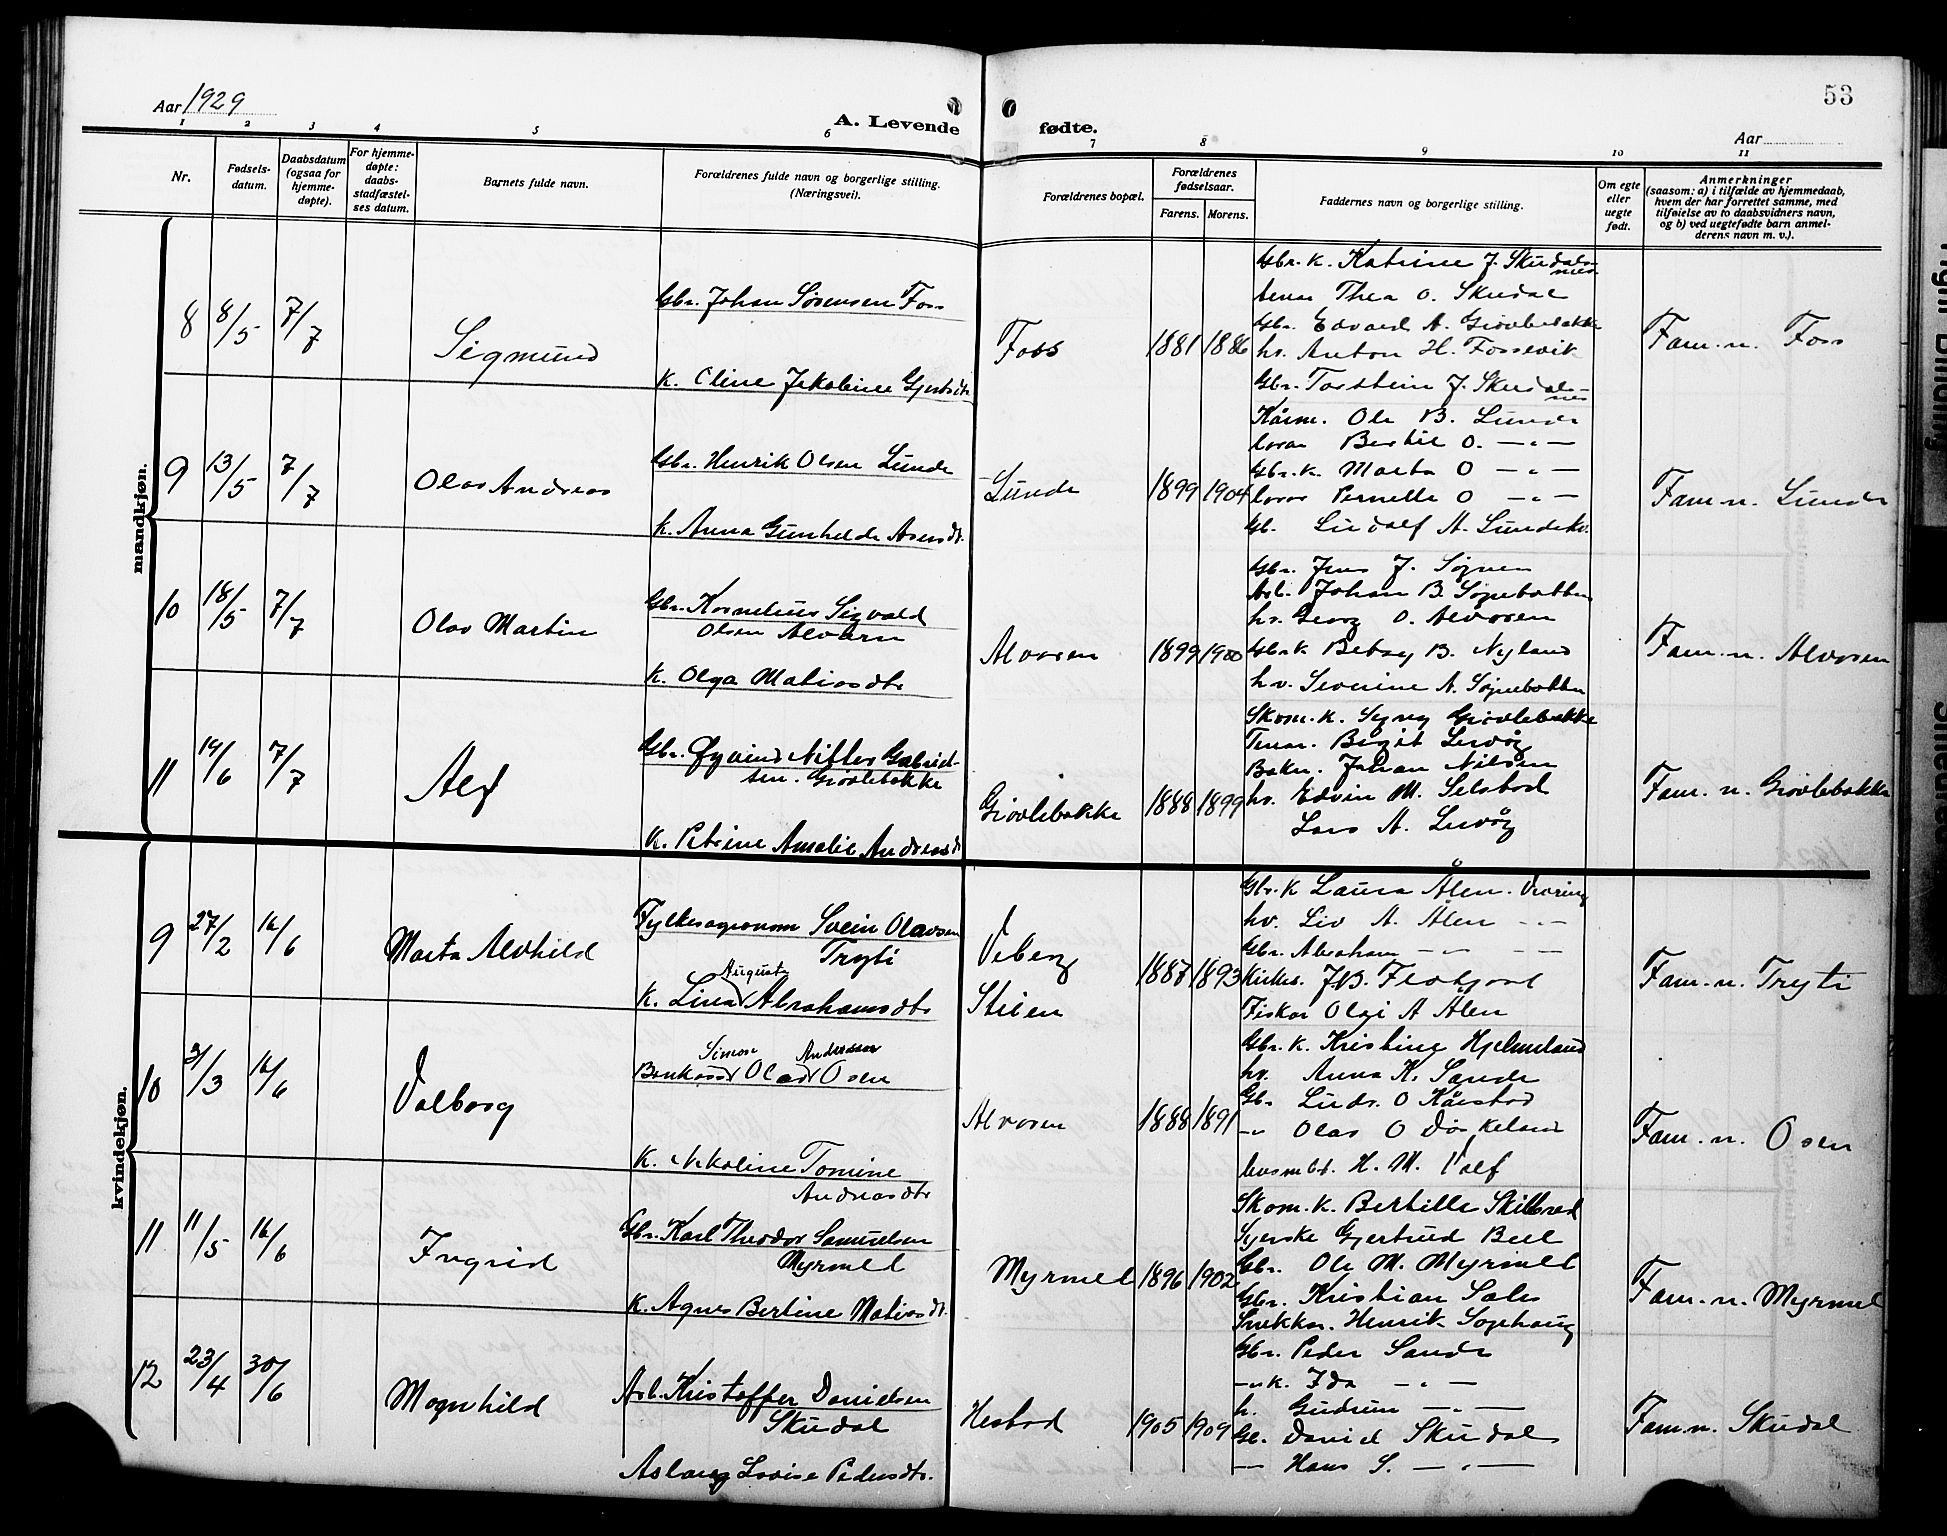 53
Aar 1929
A. Levende fødte.
Aar
1 2 3 4 5 6 7 8 9 10 11
Nr.
Fødsels-
datum.
Daabsdatum
(ogsaa for
hjemme-
døpte).
For hjemme-
døpte:
daabs-
stadfæstel-
ses datum.
Barnets fulde navn.
Forældrenes fulde navn og borgerlige stilling.
(Næringsvei).
Forældrenes bopæl.
Forældrenes
fødselsaar.
Farens. Morens.
Faddernes navn og borgerlige stilling.
Om egte
eller
uegte
født.
Anmerkninger
(saasom: a) i tilfælde av hjemmedaab,
hvem der har forrettet samme, med
tilføielse av to daabsvidners navn,
og b) ved uegtefødte barn anmel-
derens navn m. v.).
mandkjøn.
8 8/5 7/7 Sigmund
Gbr. Johan Sørensen Foss
K. Oline Jakobine Gjertsdtr
Foss 1881 1886
Gbr. k. Katrine J. Skudals-
nes
Thea O. Skudal
Gbr. Edvard A. Gjovlebakke
hv. Anton H. Fossevik
Gbr. Torstein J. Skudals-
nes
Fam. n. Foss
9 13/5 7/7 Olav Andreas
Gbr. Henrik Olsen Lunde
K. Anna Gunhilde Asensdt.
Lunde 1899 1904
Kårm. Ole B. Lunde
Bertil O. -"-
Gbr. k. Marta O -"-
Pernelle O -"-
Gb. Lindolf A. Lundekv.
Fam. n. Lunde
10 18/5 7/7 Olav Martin
Gbr. Kornelius Sigvald
Olsen Alvoren
K. Olga Matiasdtr
Alvoren 1899 1900
Gbr. Jens J. Sognen
Arb. Johan B. Sognebotten
hv. Georg O. Alvoren
Gbr k Betsy B. Nyland
hv. Severine A. Sognebotten
Fam. n. Alvoren
11 14/6 7/7 Alf
Gbr. Øyvind Nitter Gabriel-
sen. Gjovlebakke
K. Petrine Amalie Andreasdt
Gjovlebakke 1888 1899
Skom. k. Signy Gjovlebakke
Birgit Leivåg
Baker. Johan Nilsen
hv. Edvin M. Selstad
Lars A. Leivåg
Fam. n. Gjovlebakke
kvindekjøn.
9 27/2 16/6 Marta Alvhild
Fylkesagronom Svein Olavsen
Tryti
K. Lina Augusta Abrahamsdtr
Veberg
Stilen 1887 1893
Gbr. k Laura Ålen. Vevring
hv. Liv A. Ålen -"-
Gbr. Abraham -"- -"-
J.B. Flokjord
Fisker Olai A Ålen
Fam. n. Tryti
10 3/3 16/6 Valborg
Simon Anderssen
Olav Osen
K. Nikoline Tomine
Andreasdtr
Alvoren 1888 1891
Gbr. k. Kristine Hjelmeland
hv. Anna K. Sande
Gbr. Ludv. O Kårstad
-"- Olav O Dørkeland
H. M. Valf
Fam. n. Osen
11 11/5 16/6 Ingrid
Gbr. Karl Theodor Samuelsen
Myrmel
K. Agnes Bertine Matiasdt.
Myrmel 1896 1902
Skom. k. Bertille Skilbred
Syerske Gjertrud Beil
Gbr. Ole M. Myrmel
Gbr. Kristian Sales
Snekker. Henrik Sophaug
Fam. n. Myrmel
12 23/4 30/6 Magnhild
Arb. Kristoffer Danielsen
Skudal
Aslaug Lovise Pedersdtr.
Hestad 1905 1909
Gbr. Peder Sande
-"- k. Ida -"-
h. Gudrun -"-
Gb. David Skudal
-"- Hans S. -"-
Fam. n. Skudal